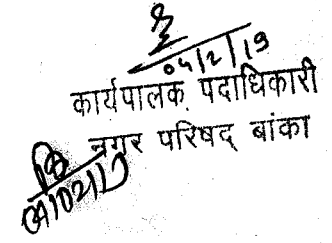 04/2/19
कार्यपालक पदाधिकारी
नगर परिषद् बांका